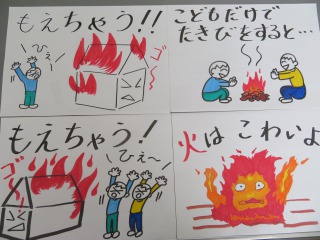 もえちゃう!!
ひぇ〜
ゴ〜
こどもだけで
たきびをすると…
もえちゃう!
ひぇ〜
ゴ〜
火はこわいよ